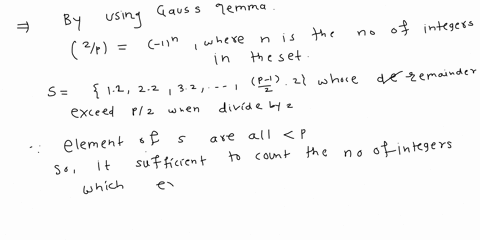 ⇒ By using Gauss lemma.
(2/p) = (-1)^n, where n is the no of integers
in the set.
S = {1.2, 2.2, 3.2, ..., (p-1)/2 . 2} whose remainder
exceed p/2 when divide by 2
∵ element of s are all < p
So, It sufficient to count the no of integers
which ex